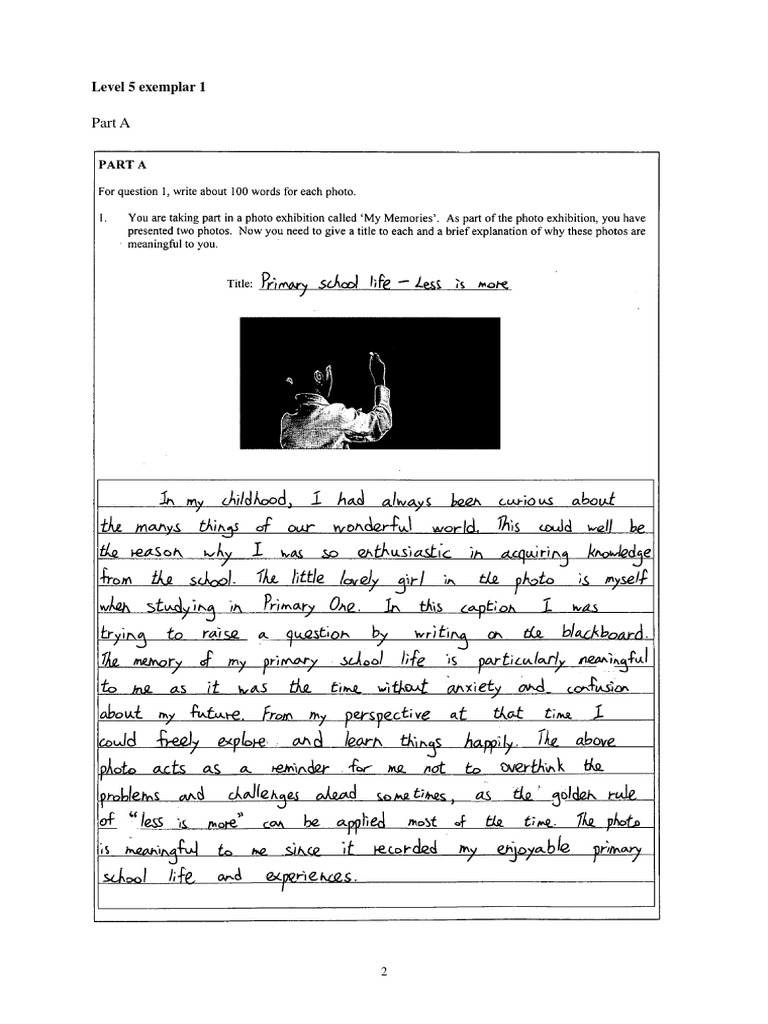 Level 5 exemplar 1
Part A
PART A
For question 1, write about 100 words for each photo.
1. You are taking part in a photo exhibition called 'My Memories'. As part of the photo exhibition, you have
presented two photos. Now you need to give a title to each and a brief explanation of why these photos are
meaningful to you.
Title: Primary school life – Less is more
In my childhood, I had always been curious about
the manys things of our wonderful world. This could well be
the reason why I was so enthusiastic in acquiring knowledge
from the school. The little lovely girl in the photo is myself
when studying in Primary One. In this caption I was
trying to raise a question by writing on the blackboard.
The memory of my primary school life is particularly meaningful
to me as it was the time without anxiety and confusion
about my future. From my perspective at that time I
could freely explore and learn things happily. The above
photo acts as a reminder for me not to overthink the
problems and challenges ahead sometimes, as the golden rule
of "less is more" can be applied most of the time. The photo
is meaningful to me since it recorded my enjoyable primary
school life and experiences.
2